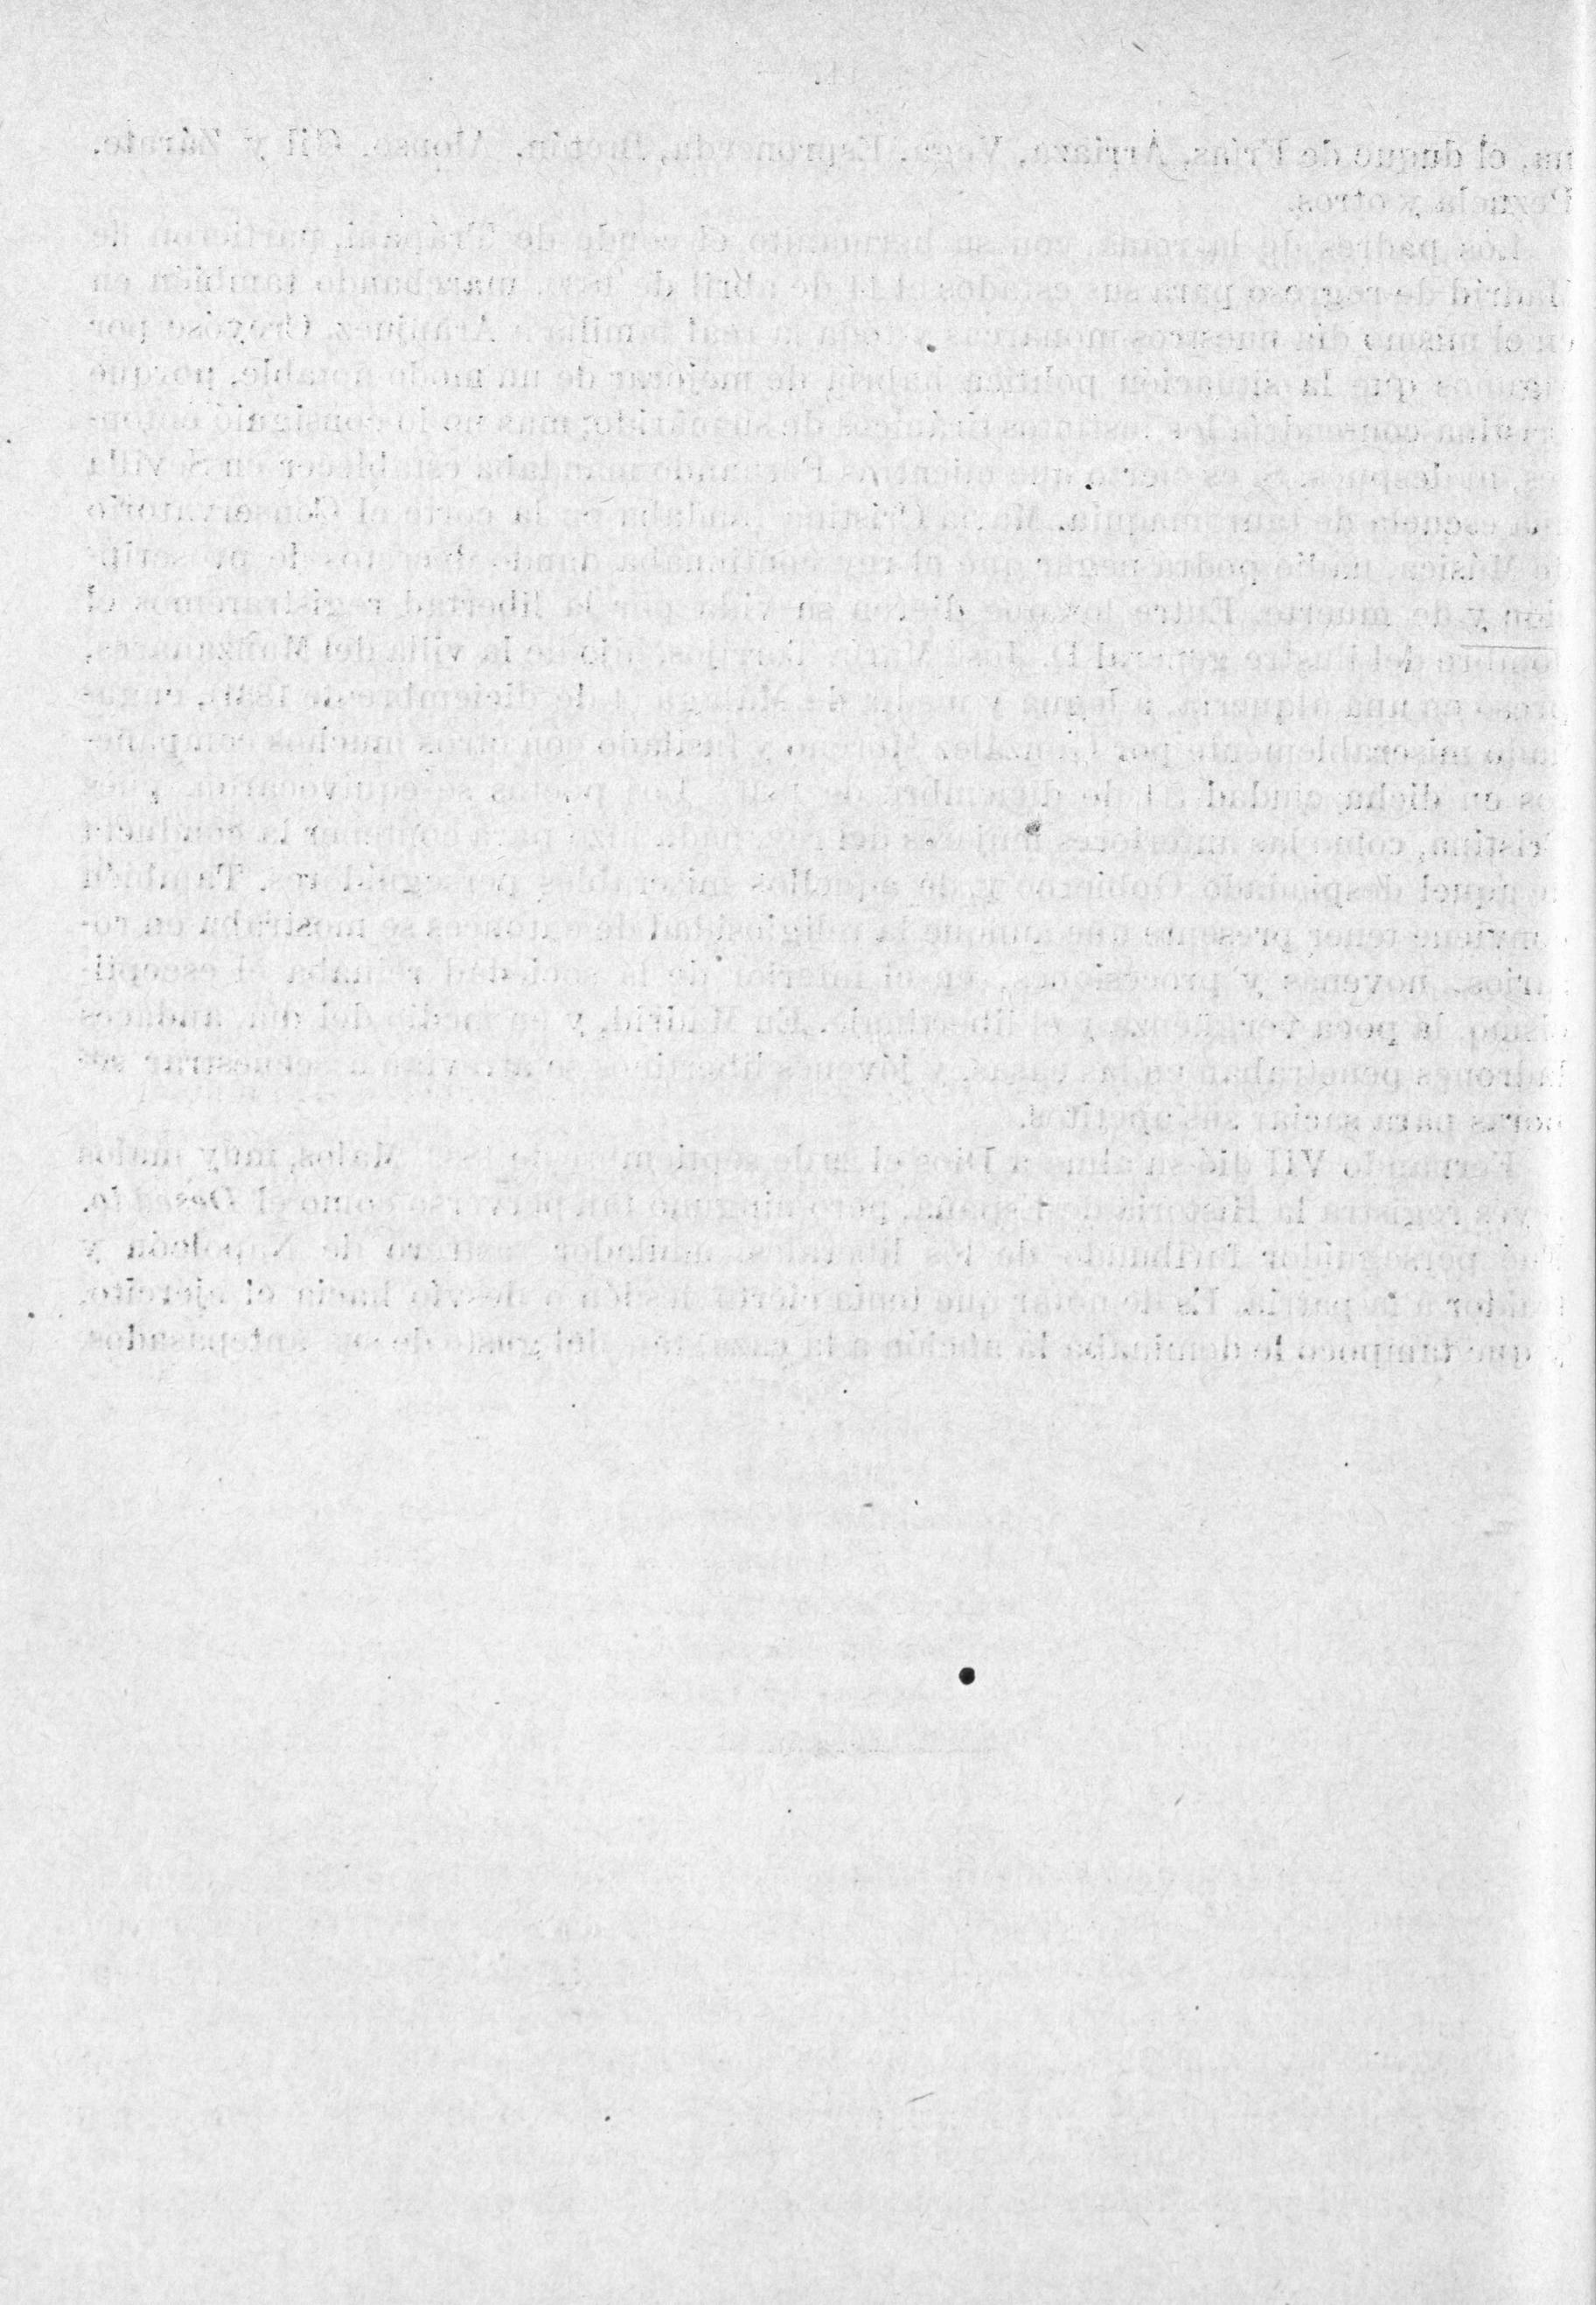 el duque de Frías, Arriaza, Vega, Espronceda, Bretón, Alonso, Gil y Zárate,
Pezuela y otros.
Los padres de la reina, con su hermanito el conde de Trápani, partieron de
Madrid de regreso para sus estados el 14 de abril de marchando también en
el mismo día nuestros monarcas y toda la real familia a Aranjuez. Creyóse por
que la situación política habría de mejorar de un modo notable, porque
los instintos tiránicos de su marido; mas no lo consiguió enton-
ni después, y es cierto que mientras Fernando mandaba establecer en Sevilla
escuela de tauromaquia, María Cristina fundaba en la corte el Conservatorio
de Música, nadie podrá negar que el rey continuaba dando decretos de proscrip-
ción y de muerte. Entre los que dieron su vida por la libertad registraremos el
nombre del ilustre general D. José María Torrijos, hijo de la villa del Manzanares,
preso en una alquería, a legua y media de Málaga de diciembre de enga-
ñado miserablemente por González Moreno y fusilado con otros muchos compañe-
ros en dicha ciudad el de diciembre de Los poetas se equivocaron, pues
Cristina, como las anteriores mujeres del rey, nada hizo para contener la conducta
de aquel despiadado Gobierno y de aquellos miserables perseguidores. También
conviene tener presente que aunque la religiosidad de entonces se mostraba en ro-
sarios, novenas y procesiones, en el interior de la sociedad reinaba el escepti-
cismo, la poca vergüenza y el libertinaje. En Madrid, y en medio del día, audaces
ladrones penetraban en las casas, y jóvenes libertinos se atrevían a secuestrar se-
ñoras para saciar sus apetitos.
Fernando VII dió su alma a Dios el de septiembre de Malos, muy malos
reyes registra la Historia de España, pero ninguno tan perverso como el Deseado,
perseguidor furibundo de los liberales, adulador rastrero de Napoleón y
traidor a la patria. Es de notar que tenía cierto desdén o desvío hacia el ejército,
que tampoco le dominaba la afición a la caza, tan del gusto de sus antepasados.